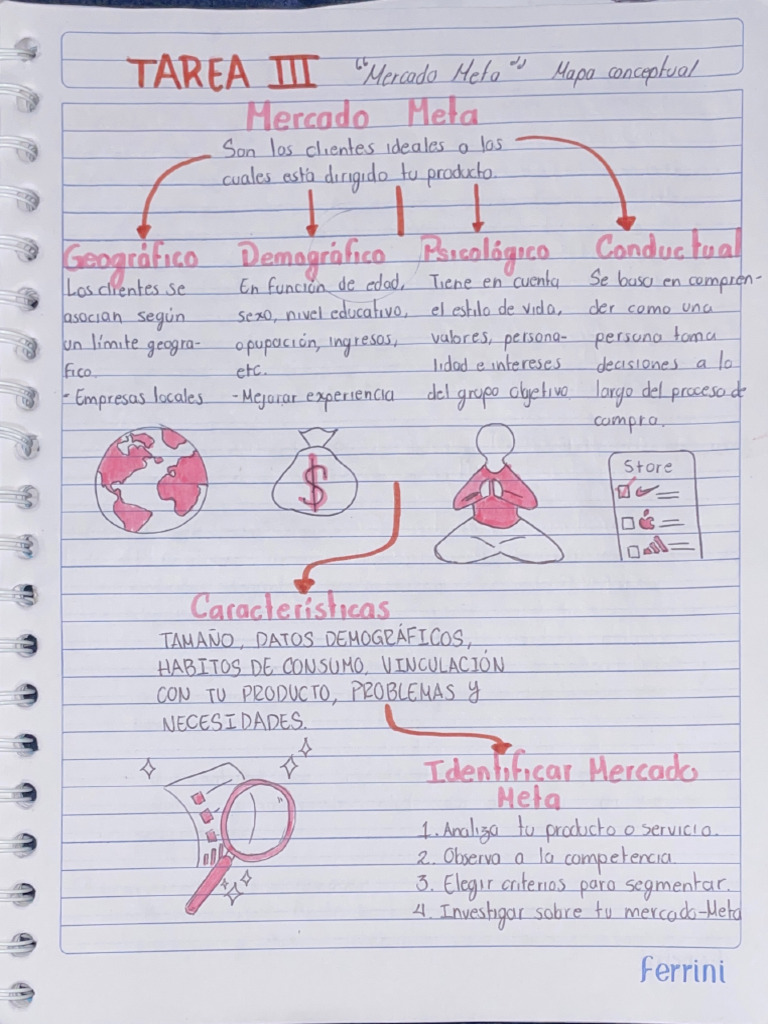 TAREA III "Mercado Meta" Mapa conceptual
Mercado Meta
Son los clientes ideales a los
cuales está dirigido tu producto.
Geográfico
Los clientes se
asocian según
un límite geogra-
fico.
- Empresas locales
Demográfico
En función de edad,
sexo, nivel educativo,
opupación, ingresos,
etc.
- Mejorar experiencia
Psicológico
Tiene en cuenta
el estilo de vida,
valores, persona-
lidad e intereses
del grupo objetivo.
Conductual
Se basa en compren-
der como una
persona toma
decisiones a lo
largo del proceso de
compra.
$
Store
Características
TAMAÑO, DATOS DEMOGRÁFICOS,
HABITOS DE CONSUMO, VINCULACIÓN
CON TU PRODUCTO, PROBLEMAS Y
NECESIDADES.
Identificar Mercado
Meta
1. Analiza tu producto o servicio.
2. Observa a la competencia.
3. Elegir criterios para segmentar.
4. Investigar sobre tu mercado-Meta
Ferrini